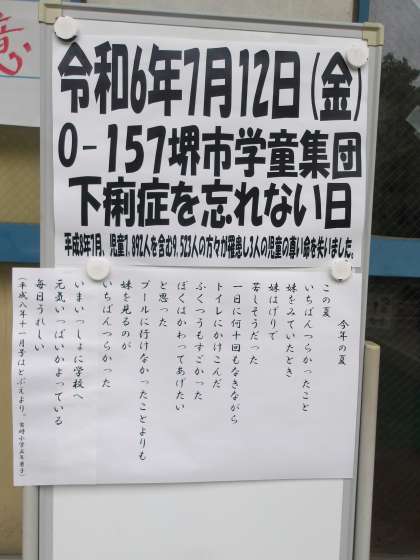 意
令和6年7月12日(金)
O-157堺市学童集団
下痢症を忘れない日
平成8年7月、児童7,892人を含む9,523人の方々が罹患し3人の児童の尊い命を失いました。
今年の夏
この夏
いちばんつらかったこと
妹をみていたとき
妹はげりで
苦しそうだった
一日に何十回もなきながら
トイレにかけこんだ
ふくつうもすごかった
ぼくはかわってあげたい
と思った
プールに行けなかったことよりも
妹を見るのが
いちばんつらかった
いまいっしょに学校へ
元気いっぱいかよっている
毎日うれしい
(平成八年十一月号はとぶえより。 小学五年男子)